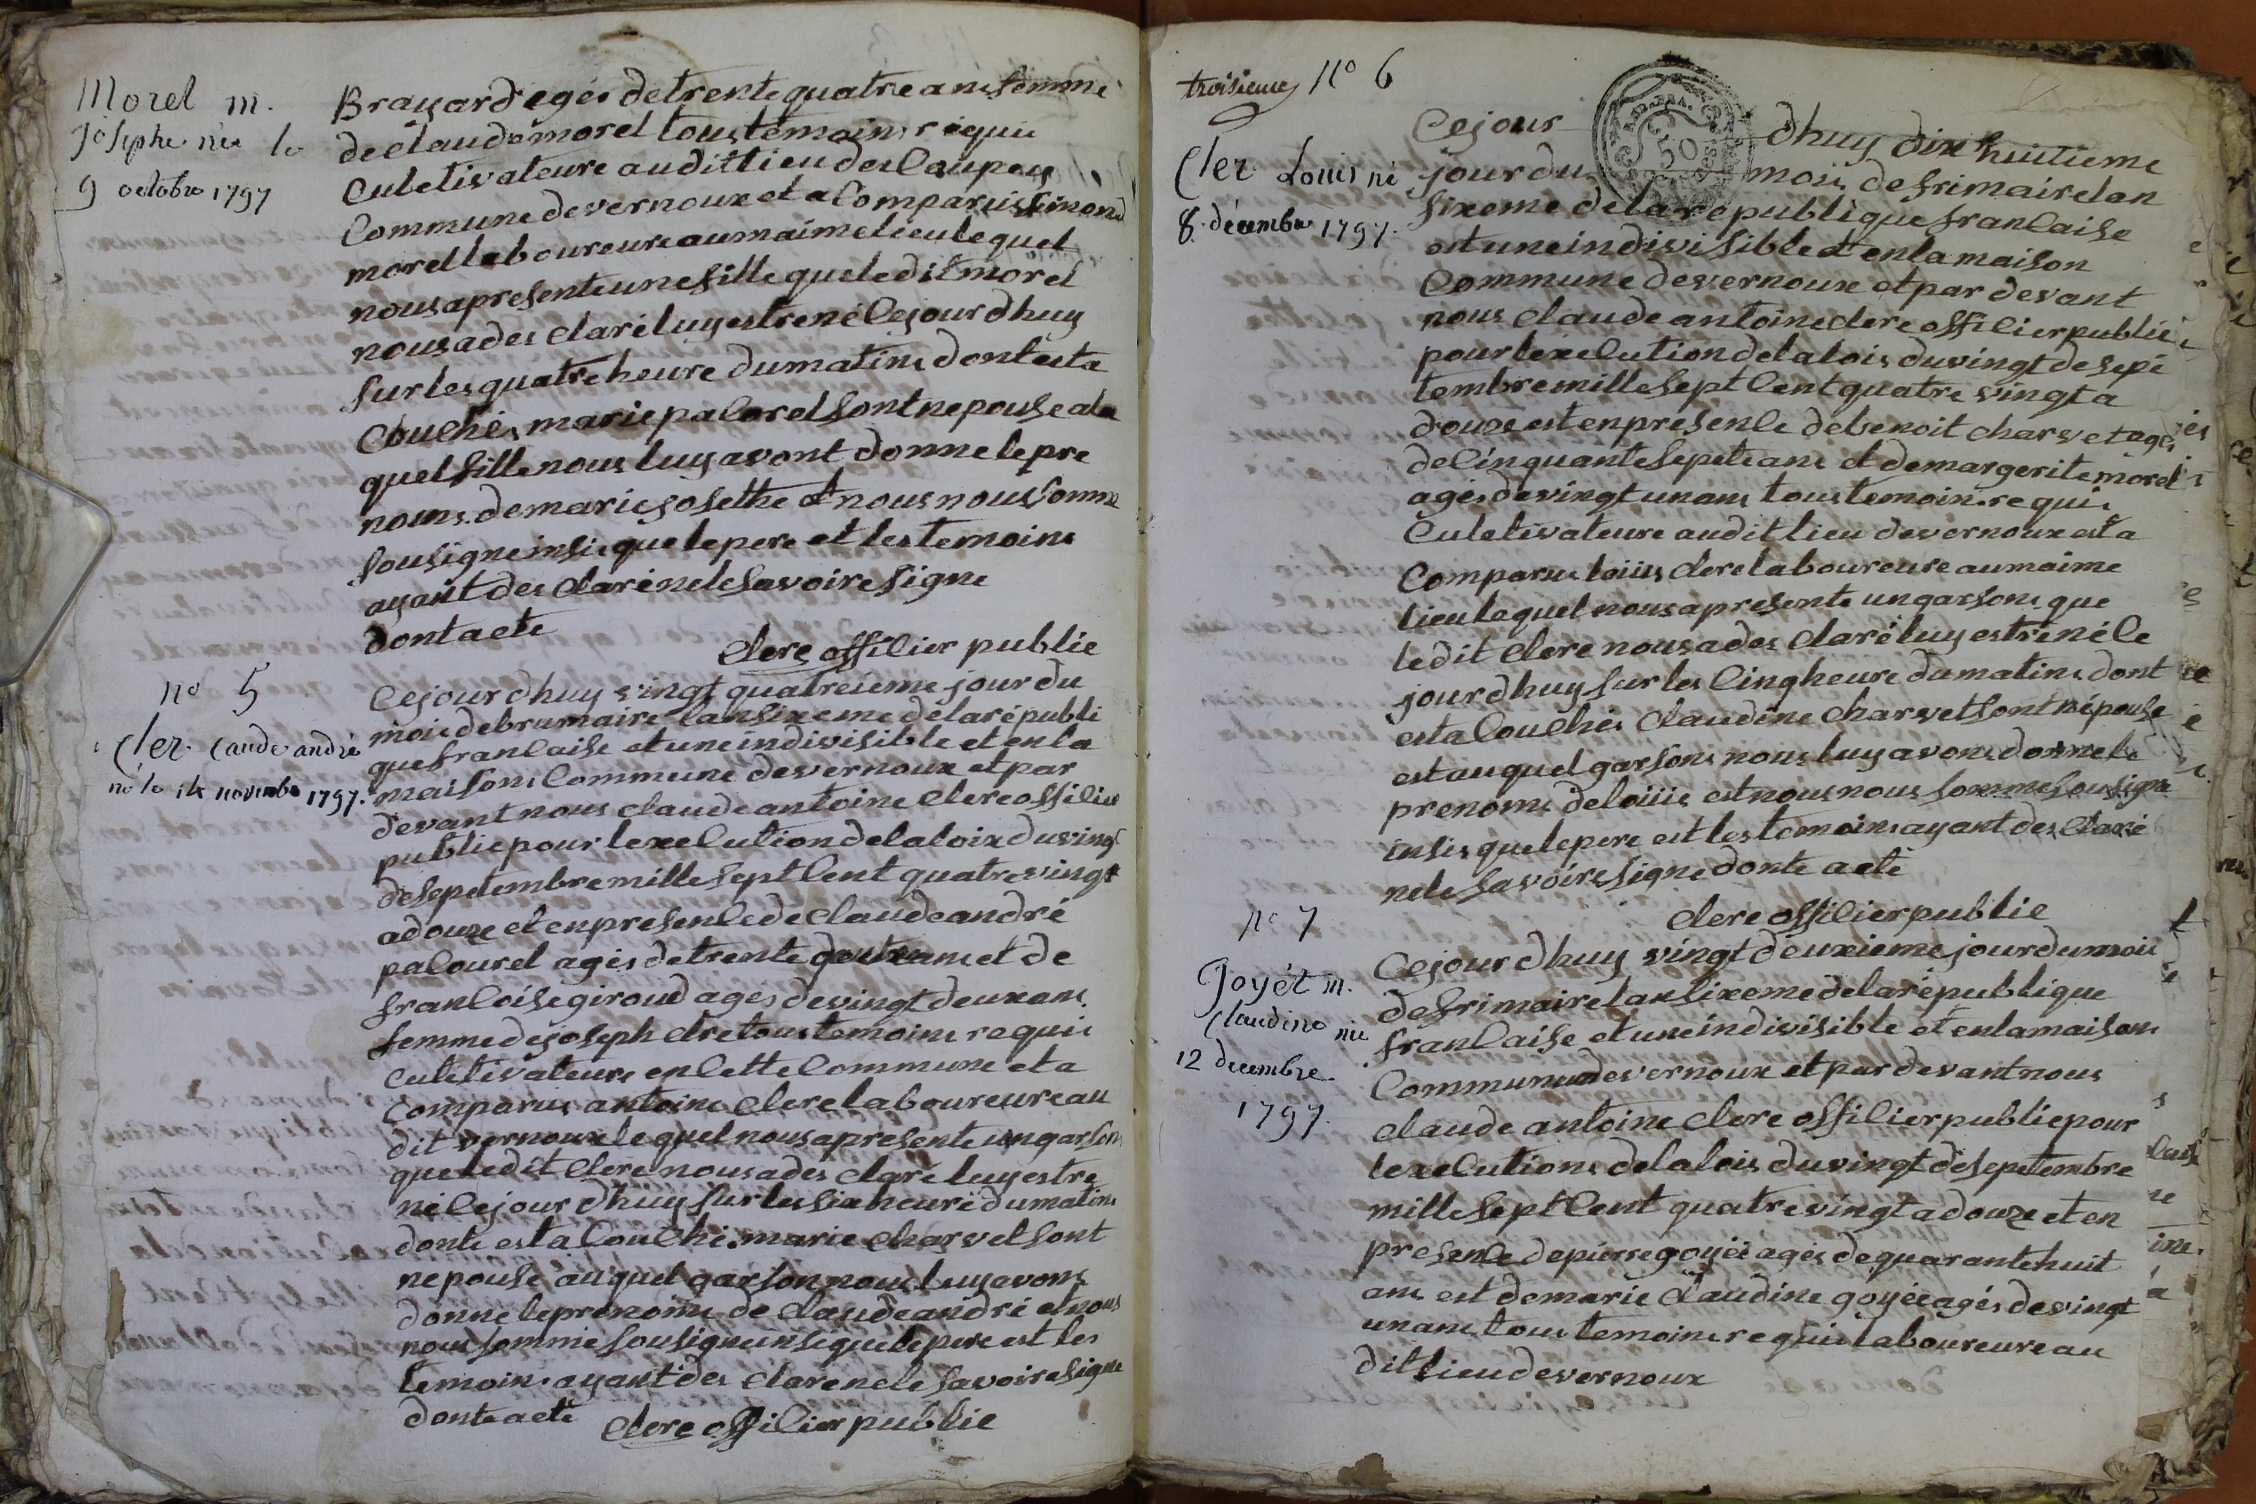 Morel m.
josephe née le
9 octobre 1797
Brayard egés de trente quatre ans femme
de claude morel tous témoins requis
Culetivateure audit lieu des Caupey
Commune de vernoux et a Comparus simond
morel laboureure au maime lieu le quel
nous a presente une fille que le dit morel
nous a des claré luy estre né Ce jour dhuy
sur les quatre heure du matins dont esta
Couchés marie palorel sont nepouse ala
quel fille nous luy avont donne le pre
noms de marie josethe et nous nous somme
sousigne insis que le pere et les temoins
ayant des claré nele savoire signe
dont acte
clerc offilier publie
no 5
Cler Caude andré
né le 14 novembe 1797.
Ce jour dhuy vingt quatreieme jour du
mois de brumaire lan sixeme de la républi
que franlaise et une indivisible et en la
maisons Commune de vernoux et par
devant nous claude antoine clerc offilier
publie pour lexelution de la loix du vingt
de sepetembre mille sept Cent quatre vingt
adouze et en presenle de claude andré
palourel agés de trente quatre ans et de
franloise giroud ages de vingt deux ans
femme de joseph clre tous temoins requis
culetivateure en Cette Commune et a
comparus antoine clere laboureure au
dit vernoux le quel nous a presente un garson
que le dit clere nous a des claré luy estre
né Ce jour dhuy sur les six heure du matins
donte esta Couché marie charvet sont
nepouse auquel garson nous luy avons
donne le prenoms de claude andré et nous
nous somme sousigne insi que le pere est les
temoins ayant des claré nele savoire signe
donte acte
clere offilier publie
troisieme No 6
Cler Louis né
8 décembre 1797.
Ce jour dhuy dix huitieme
jour du mois de frimaire lan
sixeme de la république franlaise
est une indivisible et en la maison
Commune de vernoux et par devant
nous claude antoine clere offilier publie
pour lexelution de la lois du vingt de sepe
tembre mille sept Cent quatre vingt a
douze est en présenle de benoit charvet agés
de Cinquante sepete ans et de margerite morel
agés de vingt un ans tous temoins requis
Culetivateure audit lieu de vernoux est a
Comparus loius clere laboureure au maime
lieu le quel nous a presente un garsons que
le dit clere nous a des claré luy estre né Ce
jour dhuy sur les Cinq heure du matins dont
esta Couchés claudine charvet sont népouse
est au quel garsons nous luy avons donne le
prenoms de loiiis est nous nous somme sousigne
insis que le pere est les temoins ayant des Claré
nele savoire signe donte acte
clere offilier publie
no 7
Goyét m.
claudine née
12 decembre
1797.
Ce jour dhuy vingt deuxieme jour du mois
de frimaire lan sixeme de la république
franlaise et une indivisible et en la maisons
Commune de vernoux et par devant nous
claude antoine clere offilier publie pour
lexelutions de la lois du vingt de sepetembre
mille sept Cent quatre vingt a douze et en
presenle de pierre goyée agés de quarante huit
ans est de marie Claudine goyée agés de vingt
un ans tous temoins requis laboureure au
dit lieu de vernoux